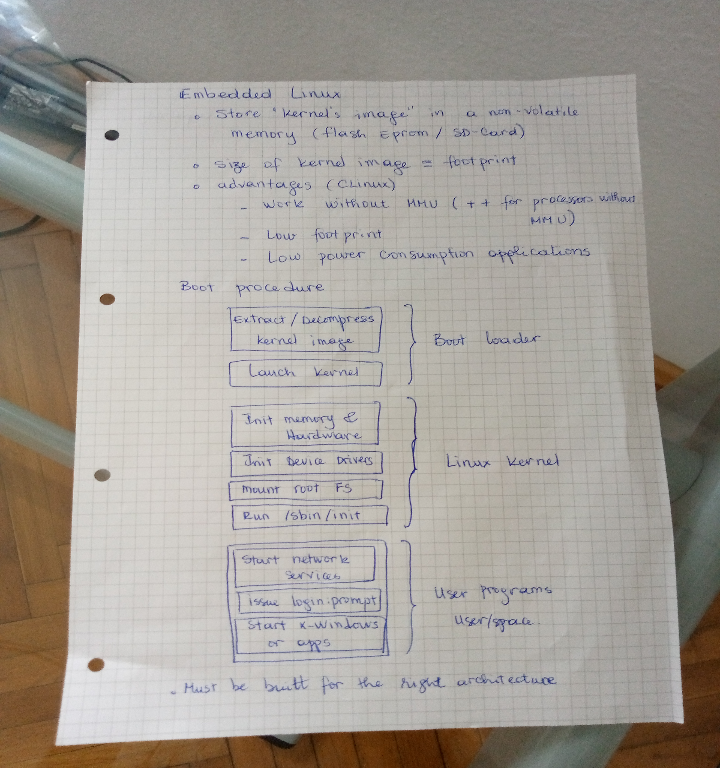 Embedded Linux
◦ Store "kernel's image" in a non-volatile
memory (flash Eprom / SD-Card)
◦ Size of kernel image = footprint
◦ advantages (CLinux)
- Work without MMU (++ for processors without
MMU)
- Low foot print
- Low power consumption applications
Boot procedure
Extract / Decompress
kernel image
Lauch kernel
Boot loader
Init memory &
Hardware
Init Device Drivers
Mount root FS
Run /sbin/init
Linux kernel
Start network
services
issue login.prompt
Start X-windows
or apps
User programs
User/space.
. Must be built for the right architecture